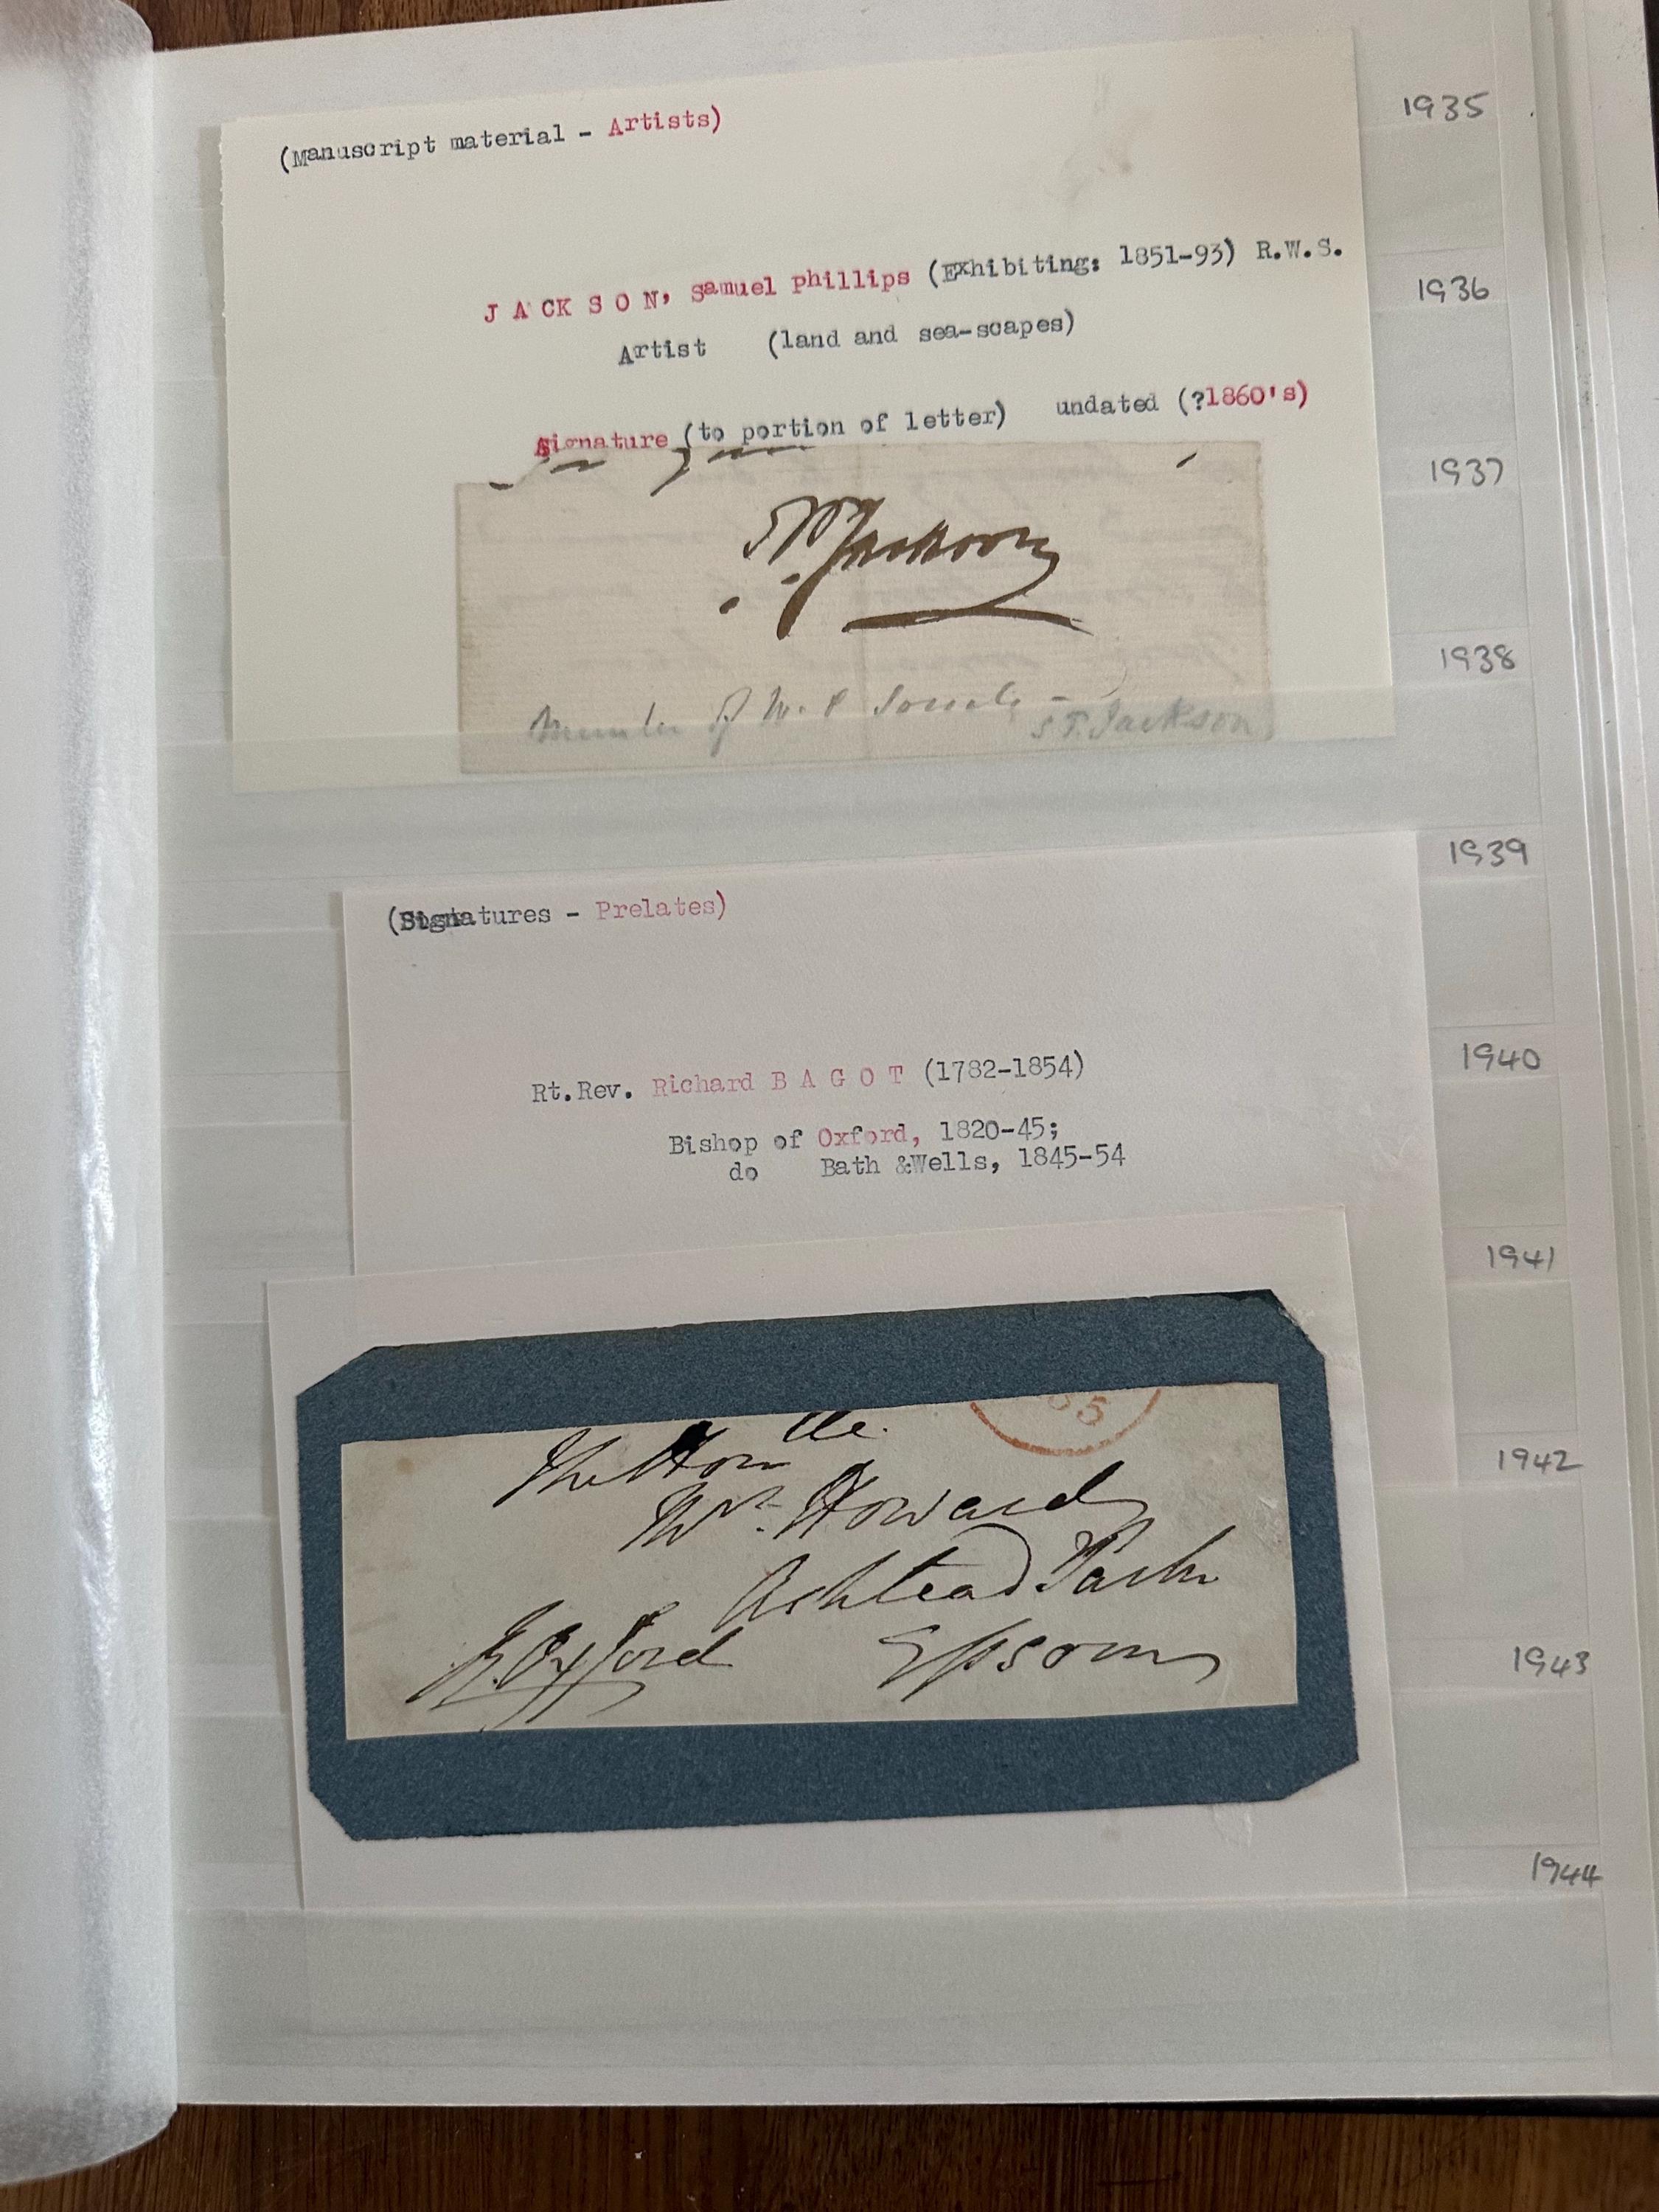 (Manuscript material - Artists)
1935
J A CK S O N, Samuel Phillips (Exhibiting: 1851-93) R.W.S.
1936
Artist (land and sea-scapes)
Signature (to portion of letter) undated (?1860's)
1937
SP. Jackson
1938
Member of W. C
S P. Jackson
1939
(Signatures - Prelates)
1940
Rt.Rev. Richard B A G O T (1782-1854)
Bishop of Oxford, 1820-45;
do Bath &Wells, 1845-54
1941
5
The Honble.
1942
Mrs. Howard
Ashtead Park
Epsom
R. Oxford
1943
1944